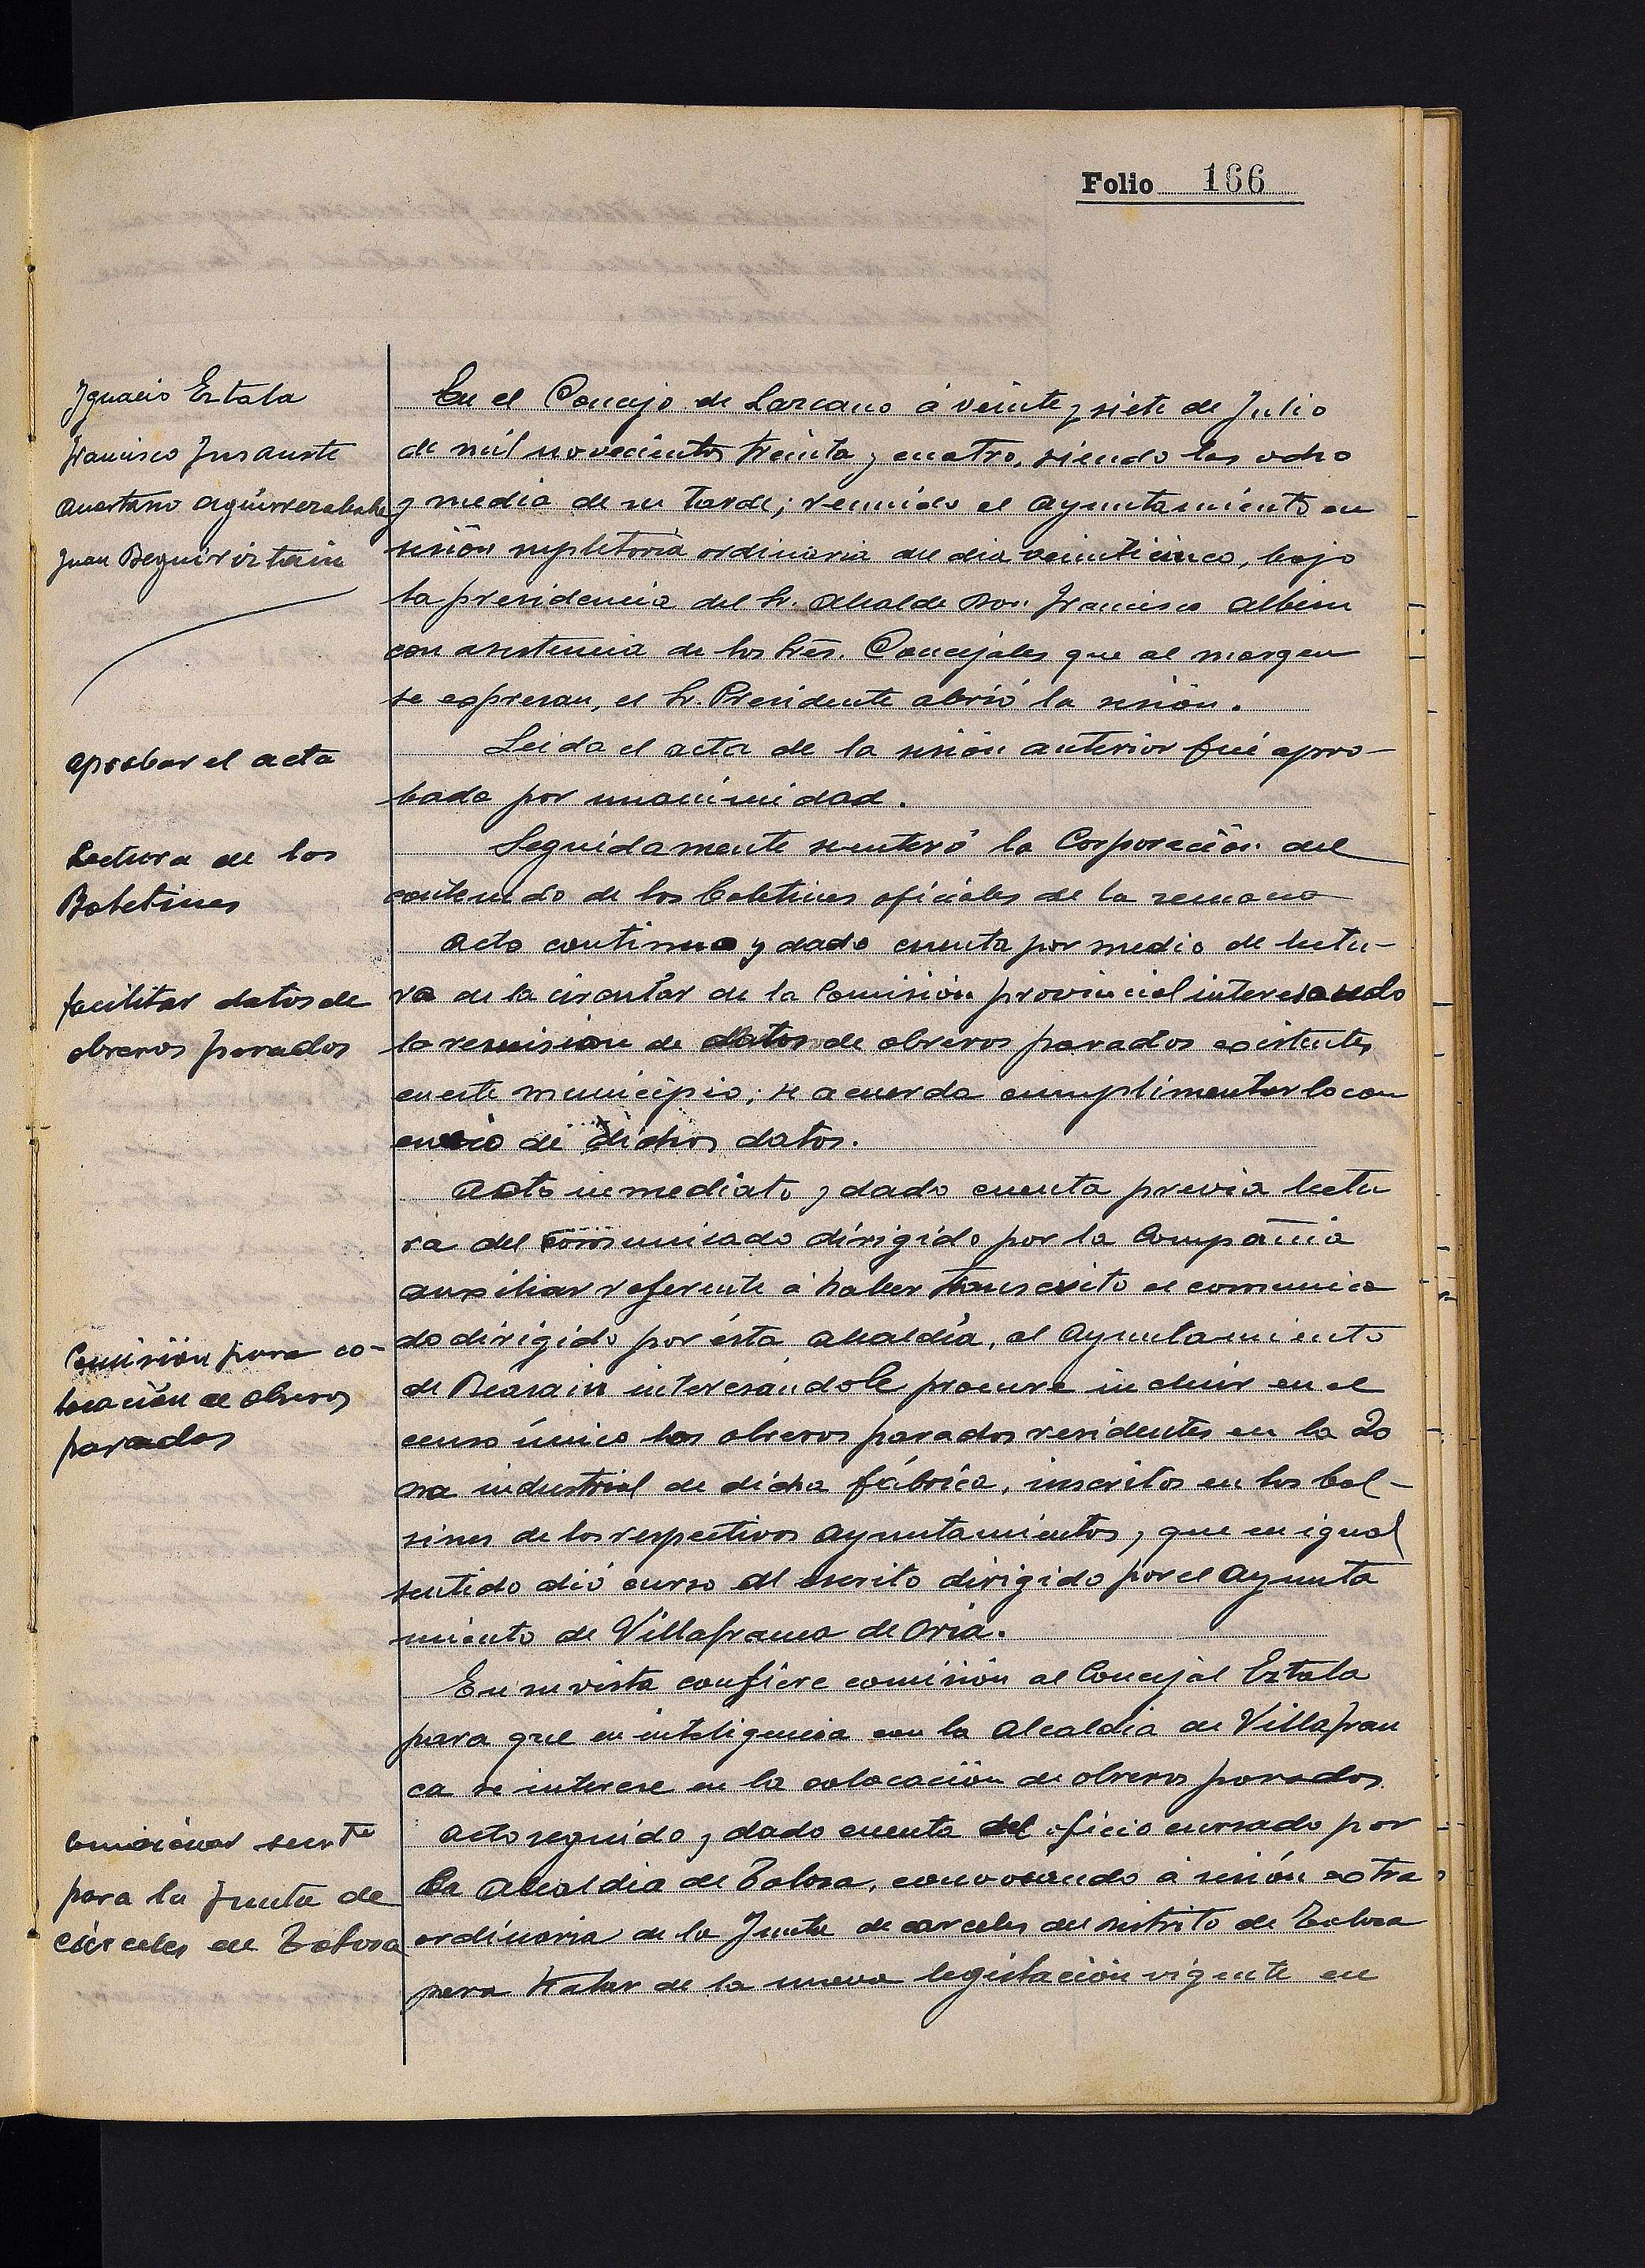 Folio 166
Ignacio Eztala
Francisco Insausti
Anastasio Aguirrezabala
Juan Beguiriztain
En el Concejo de Lazcano á veinte y siete de Julio
de mil novecientos treinta y cuatro, siendo las ocho
y media de su tarde; reunido el Ayuntamiento en
sesión supletoria ordinaria del dia veinticinco, bajo
la presidencia del Sr. Alcalde Don Francisco Albisu
con asistencia de los Sres. Concejales que al margen
se expresan, el Sr. Presidente abrió la sesión.
aprobar el acta
Leida el acta de la sesión anterior fué apro-
bada por unanimidad.
Lectura de los
Boletines
Seguidamente se enteró la Corporación del
contenido de los boletines oficiales de la semana
facilitar datos de
obreros parados
Acto continuo y dado cuenta por medio de lectu-
ra de la circular de la Comisión provincial interesando
la remision de datos de obreros parados existentes
en este municipio; se acuerda cumplimentarlo con
envio de dichos datos.
Acto inmediato y dado cuenta previa lectu
ra del comunicado dirigido por la Compañia
auxiliar referente á haber transcrito el comunica
Comisión para co-
locación de obreros
parados
do dirigido por ésta alcaldia, al Ayuntamiento
de Beasain interesándole procure incluir en el
censo único los obreros parados residentes en la Zo
na industrial de dicha fábrica, inscritos en los bol-
sines de los respectivos Ayuntamientos, que en igual
sentido dió curso al escrito dirigido por el Ayunta
miento de Villafranca de Oria.
En su vista confiere comisión al Concejal Eztala
para que en inteligencia con la Alcaldia de Villafran
ca se interese en la colocación de obreros parados
Comisionar
para la Junta de
cárceles de Tolosa
Acto seguido y dado cuenta del oficio cursado por
la Alcaldia de Tolosa, convocando á sesión extra
ordinaria de la Junta de carceles del distrito de Tolosa
para tratar de la nueva legislación vigente en